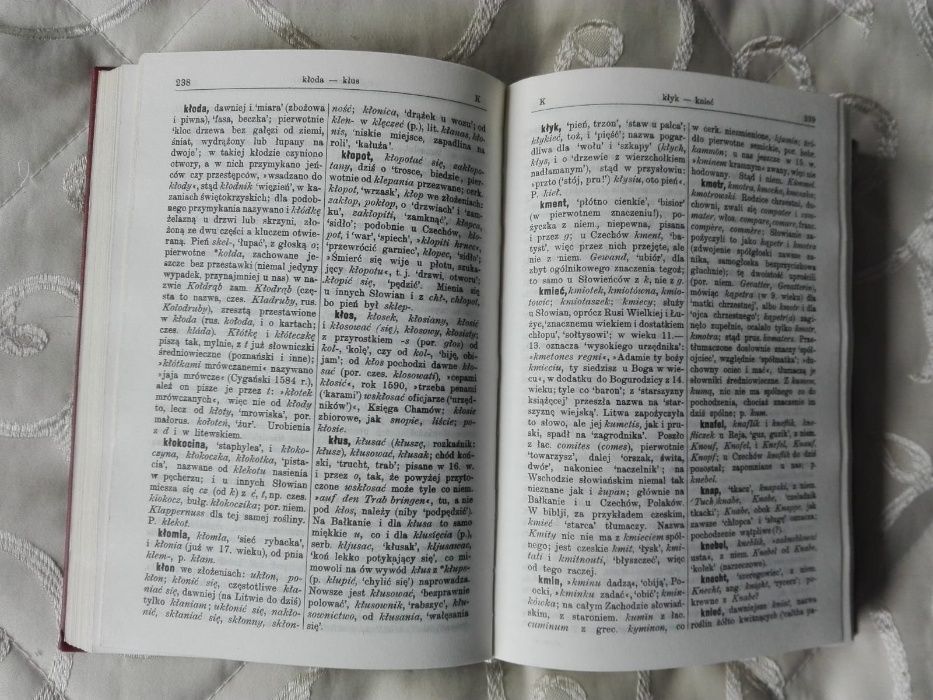 238
kłoda — kłus
K
kłoda, dawniej i 'miara' (zbożowa
i piwna), 'fasa, beczka'; pierwotnie
'kloc drzewa bez gałęzi od ziemi,
śniat, wydrążony lub łupany na
dwoje'; w takiej kłodzie czyniono
otwory, a w nich przymykano jeń-
ców czy przestępców, »wsadzano do
kłody«, stąd kłodnik 'więzień', w ka-
zaniach świętokrzyskich; dla podob-
nego przymykania nazywano i kłódkę
żelazną u drzwi lub skrzyni, zło-
żoną ze dwu części a kluczem otwie-
raną. Pień skel-, 'łupać', z głoską o;
pierwotne *kolda, zachowane je-
szcze bez przestawki (niemal jedyny
wypadek, przynajmniej u nas) w na-
zwie Kołdrąb zam. Kłodrąb (czę-
sta to nazwa, czes. Kladruby, rus.
Kolodruby), zresztą przestawione
w kłoda (rus. kołoda, i o kartach;
czes. kláda). Kłótkę i kłóteczkę
piszą tak, mylnie, z t już słowniczki
średniowieczne (poznański i inne);
»kłótkami mrówczanemi« nazywano
'jaja mrówcze' (Cygański 1584 r.),
ależ on pisze je przez t: »kłotek
mrówczanych«, więc nie od kłody
to, lecz od kłoty, 'mrowiska', por.
małorus. kołoteń, 'żur'. Urobienia
z d i w litewskiem.
kłokocina, 'staphylea', i kłoko-
czyna, kłokoczka, kłokotka, 'pista-
cia', nazwane od klekotu nasienia
w pęcherzu; i u innych Słowian
miesza się cz (od k) z ć, t, np. czes.
klokocz, bulg. kłokoczika; por. niem.
Klappernuss dla tej samej rośliny.
P. klekot.
kłomia, kłomla, 'sieć rybacka',
i kłonia (już w 17. wieku), od pnia
klem-, p. kłam.
kłon we złożeniach: ukłon, po-
kłon; kłonić się, częstotliwe kła-
niać się, dawniej (na Litwie do dziś)
tylko kłaniam; ukłonić się, nakło-
nić, skłaniać się, skłonny, skłon-
ność; kłonica, 'drążek u wozu'; od
klen- w klęczeć (p.), lit. kłanas, kło-
nis, 'niskie miejsce, zapadlina na
roli', 'kałuża'.
kłopot, kłopotać się, zakłopo-
tany, dziś o 'trosce, biedzie', pier-
wotnie od klepania przezwane; cerk.
kłopot, 'wrzask', kłop we złożeniach:
zakłop, pokłop, o 'drzwiach' i 'zam-
ku', zakłopiti, 'zamknąć', kłopca,
'sidło'; podobnie u Czechów, kło-
pot, i 'war', 'spiech', »kłopiti hrnec«,
'przewrócić garniec', kłopec, 'sidło';
»Śmierć się wije u płotu, szuka-
jący kłopotu«, t. j. 'drzwi, otworu';
kłopić się, 'pędzić'. Mienia się
u innych Słowian i z chł-, chłopot,
bo pień był sklep-.
kłos, kłosek, kłosiany, kłosić
i kłosować (się), kłosowy, kłosisty;
z przyrostkiem -s (por. głos) od
koł-, 'kolę', czy od kol-, 'biję, obi-
jan'; od kłos pochodzi dawne kło-
sać (por. czes. kłosowati), »cepami
kłosić«, rok 1590, »trzeba penami
('karami') wskłosać oficjarze ('urzęd-
ników')«, Księga Chamów; kłosie
zbiorowe, jak snopie, liście; po-
kłosie.
kłus, kłusać (kłuszę, rozkaźnik:
kłusz), kłusować, kłusak; chód koń-
ski, 'trucht, trab'; pisane w 16. w.
i przez o, tak, że powyżej przyto-
czone wskłosać może tyle co niem.
»auf den Trab bringen«, tu, a nie
pod kłos, należy (niby 'podpędzić').
Na Bałkanie i dla kłusa to samo
miękkie u, co i dla klusięcia (p.),
serb. kljusac, 'kłusak', kljusawac,
'koń lekko potykający się', co mi-
mowoli na ów wywód kłus z *kłups-
(p. kłupić, 'chylić się') naprowadza.
Nowsze jest kłusować, 'bezprawnie
polować', kłusownik, 'rabszyc', kłu-
sownictwo, od kłusania, 'wałęsania
się'.
K
kłyk — knieć
239
kłyk, 'pień, trzon', 'staw u palca';
kłykieć, toż, i 'pięść'; nazwa pogar-
dliwa dla 'wołu' i 'szkapy' (kłych,
kłys, i o 'drzewie z wierzchołkiem
nadłamanym'), stąd w przysłowiu:
»prrto ('stój, pru!') kłysiu, oto pień«.
P. kieł.
kment, 'płótno cienkie', 'bisior'
(w pierwotnem znaczeniu!), po-
życzka z niem., niepewna, pisana
i przez g; u Czechów kment, 'ba-
tyst', więc przez nich przejęte, ale
nie z niem. Gewand, 'ubiór', dla
zbyt ogólnikowego znaczenia tegoż;
to samo u Słowieńców z k, nie z g.
kmieć, kmiotek, kmiotówna, kmio-
towic; kmiotaszek; kmiecy; służy
u Słowian, oprócz Rusi Wielkiej i Łu-
życ, 'znacznemu wiekiem i dostatkiem
chłopu', 'sołtysowi'; w wieku 11.—
13. oznacza 'wysokiego urzędnika':
»kmetones regni«, »Adamie ty boży
kmieciu, ty siedzisz u Boga w wie-
cu«, w dodatku do Bogurodzicy z 14.
wieku; tyle co 'baron'; z 'starszyny
książęcej' przeszła nazwa na 'star-
szyznę wiejską'. Litwa zapożyczyła
to słowo, ale jej kumetis, jak i pru-
ski, spadł na 'zagrodnika'. Poszło
z łac. comites (comes), pierwotnie
'towarzysz', dalej 'orszak, świta,
dwór', nakoniec 'naczelnik'; na
Wschodzie słowiańskim niemal tak
nieznane jak i żupan; głównie na
Bałkanie i u Czechów, Polaków.
W biblji, za przykładem czeskim,
kmieć 'starca' tłumaczy. Nazwa
Kmity nic nie ma z kmieciem spól-
nego; jest czeskie kmit, 'łysk', kmi-
tati i kmitnouti, 'błyszczeć', więc
od tego raczej.
kmin, »kminu dadzą«, 'obiją', Po-
tocki, »kminku zadać«, 'obić'; kmin-
kówka; na całym Zachodzie słowiań-
skim, z staroniem. kumin z łac.
cuminum z grec. kyminon, co
w cerk. niezmienione, kjumin; źró-
dło pierwotne semickie, por. hebr.
kammôn; u nas jeszcze w 15. w.
»kmienem kramnym« zwany, więc nie
hodowany. Stąd i niem. Kümmel.
kmotr, kmotra, kmocha, kmoszka;
kmotrowski. Rodzice chrzestni, du-
chowni, zwali się compater i com-
mater, włos. compare, comare, franc.
compère, commère; Słowianie za-
pożyczyli to jako kąpetr i kmotra
(zdwojenie spółgłoski zawsze za-
nika, samogłoska bezprzyciskowa
głuchnie); tę dwoistość uprościli
(por. niem. Gevatter, Gevatterin),
mówiąc kąpetra (w 9. wieku) dla
'matki chrzestnej', albo kmotr i dla
'ojca chrzestnego'; kąpetr(a) zagi-
nęło zupełnie, ocalało tylko kmotr,
kmotra; stąd prus. komaters. Prze-
tłumaczone dosłownie znaczy 'spół-
ojciec', względnie 'spółmatka'; »du-
chowny ociec i mać«, tłumaczą je
słowniki średniowieczne. Z kumem,
kumą, nic nie ma spólnego co do
pochodzenia, chociaż znaczenie in
dziś spólne; p. kum.
knafel, knaflik i knoflik, kne-
fliczek u Reja, 'guz, guzik', z niem.
Knouf, Knofel, i Knefel, Knauf,
Knopf; u Czechów knoflik do dziś
pozostał; zapomniane u nas; p.
knebel.
knap, 'tkacz', knapski, z niem.
'Tuchknabe, Knabe, 'czeladnik
tkacki'; Knabe, obok Knappe, jak
zawsze 'chłopca' i 'sługę' oznacza;
pochodzenie wątpliwe (?).
knebel, kneblik, »zakneblować
usta«, z niem. Knebel od Knabe,
'kołek' (narzeczowo).
knecht, 'szeregowiec', z niem.
Knecht, ang. knight, 'rycerz'; po-
krewne z Knabe?
knieć, dawniejsze kmieć, nazwa
roślin żółto kwitnących ('caltha pa-